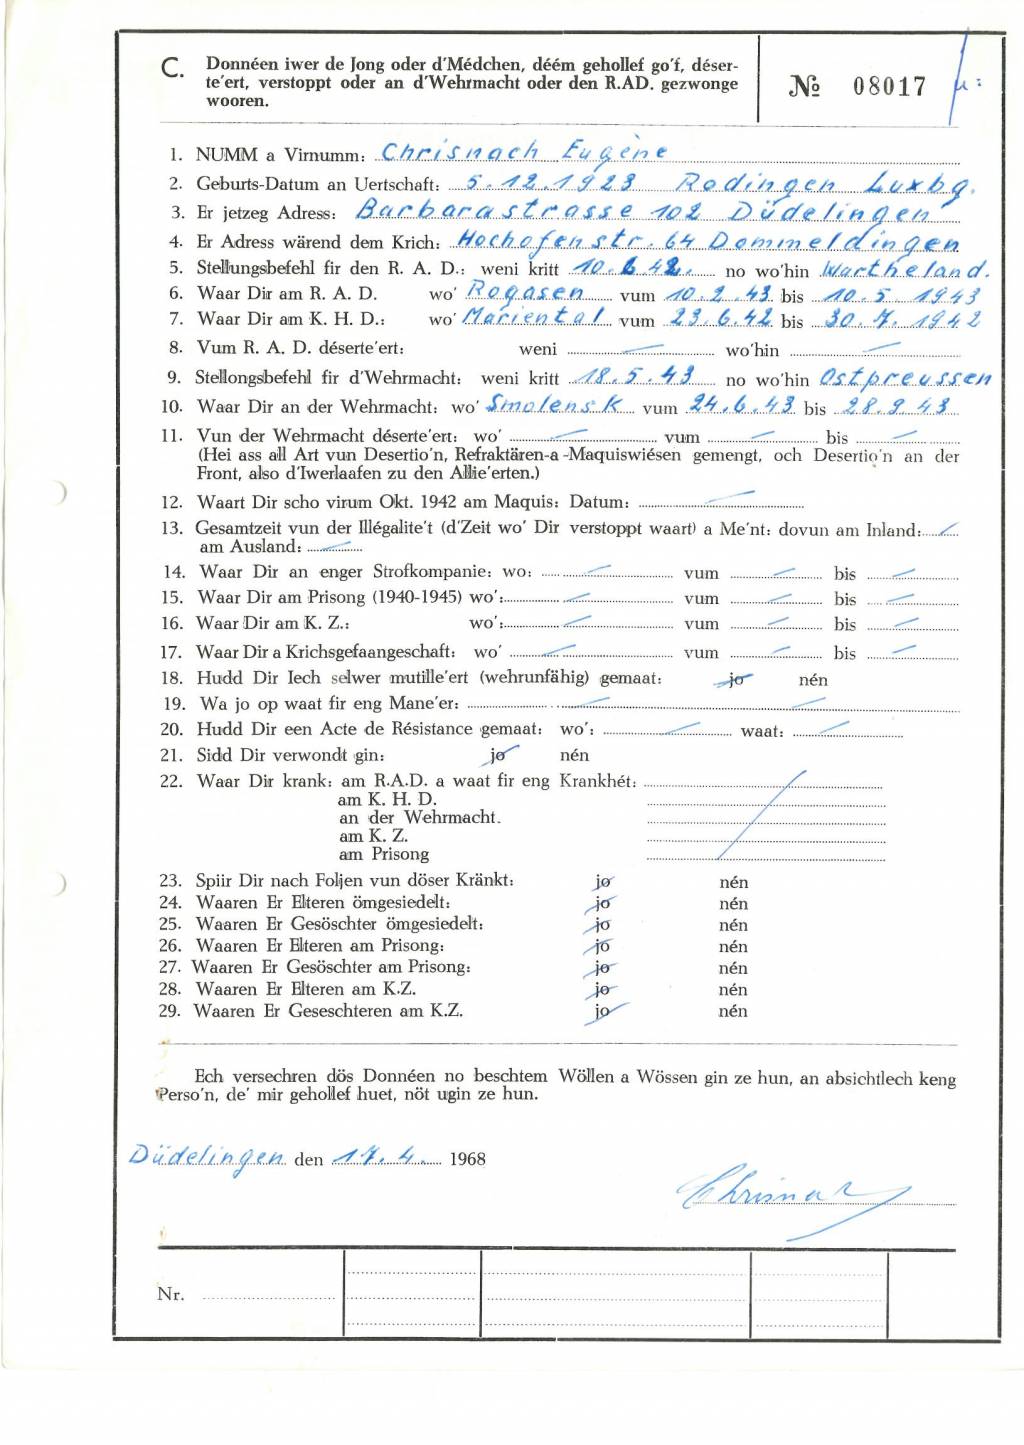 C. Donnéen iwer de Jong oder d'Médchen, déém gehollef go'f, déser-
te'ert, verstoppt oder an d'Wehrmacht oder den R.AD. gezwonge
wooren.
№ 08017
1. NUMM a Virnumm: Chrisnach Eugène
2. Geburts-Datum an Uertschaft: 5.12.1923 Rodingen Luxbg.
3. Er jetzeg Adress: Barbarastrasse 102 Düdelingen
4. Er Adress wärend dem Krich: Hochofenstr. 64 Dommeldingen
5. Stellungsbefehl fir den R. A. D.: weni kritt 10.6.42. no wo'hin Wartheland.
6. Waar Dir am R. A. D. wo' Rogasen vum 10.2.43 bis 10.5 1943
7. Waar Dir am K. H. D.: wo' Mariental vum 23.6.42 bis 30.7.1942
8. Vum R. A. D. déserte'ert: weni — wo'hin —
9. Stellongsbefehl fir d'Wehrmacht: weni kritt 18.5.43 no wo'hin Ostpreussen
10. Waar Dir an der Wehrmacht: wo' Smolensk vum 24.6.43 bis 28.9.43
11. Vun der Wehrmacht déserte'ert: wo' — vum — bis —
(Hei ass all Art vun Desertio'n, Refraktären-a-Maquiswiésen gemengt, och Desertio'n an der
Front, also d'Iwerlaafen zu den Allie'erten.)
12. Waart Dir scho virum Okt. 1942 am Maquis: Datum: —
13. Gesamtzeit vun der Illégalite't (d'Zeit wo' Dir verstoppt waart) a Me'nt: dovun am Inland: —
am Ausland: —
14. Waar Dir an enger Strofkompanie: wo: — vum — bis —
15. Waar Dir am Prisong (1940-1945) wo': — vum — bis —
16. Waar Dir am K. Z.: wo': — vum — bis —
17. Waar Dir a Krichsgefaangeschaft: wo' — vum — bis —
18. Hudd Dir Iech selwer mutille'ert (wehrunfähig) gemaat: jo nén
19. Wa jo op waat fir eng Mane'er: — —
20. Hudd Dir een Acte de Résistance gemaat: wo': — waat: —
21. Sidd Dir verwondt gin: jo nén
22. Waar Dir krank: am R.A.D. a waat fir eng Krankhét:
am K. H. D.
an der Wehrmacht.
am K. Z.
am Prisong
23. Spiir Dir nach Foljen vun döser Kränkt: jo nén
24. Waaren Er Elteren ömgesiedelt: jo nén
25. Waaren Er Gesöschter ömgesiedelt: jo nén
26. Waaren Er Elteren am Prisong: jo nén
27. Waaren Er Gesöschter am Prisong: jo nén
28. Waaren Er Elteren am K.Z. jo nén
29. Waaren Er Geseschteren am K.Z. jo nén
Ech versechren dös Donnéen no beschtem Wöllen a Wössen gin ze hun, an absichtlech keng
Perso'n, de' mir gehollef huet, nöt ugin ze hun.
Düdelingen den 17.4. 1968
Chrisnach
Nr.